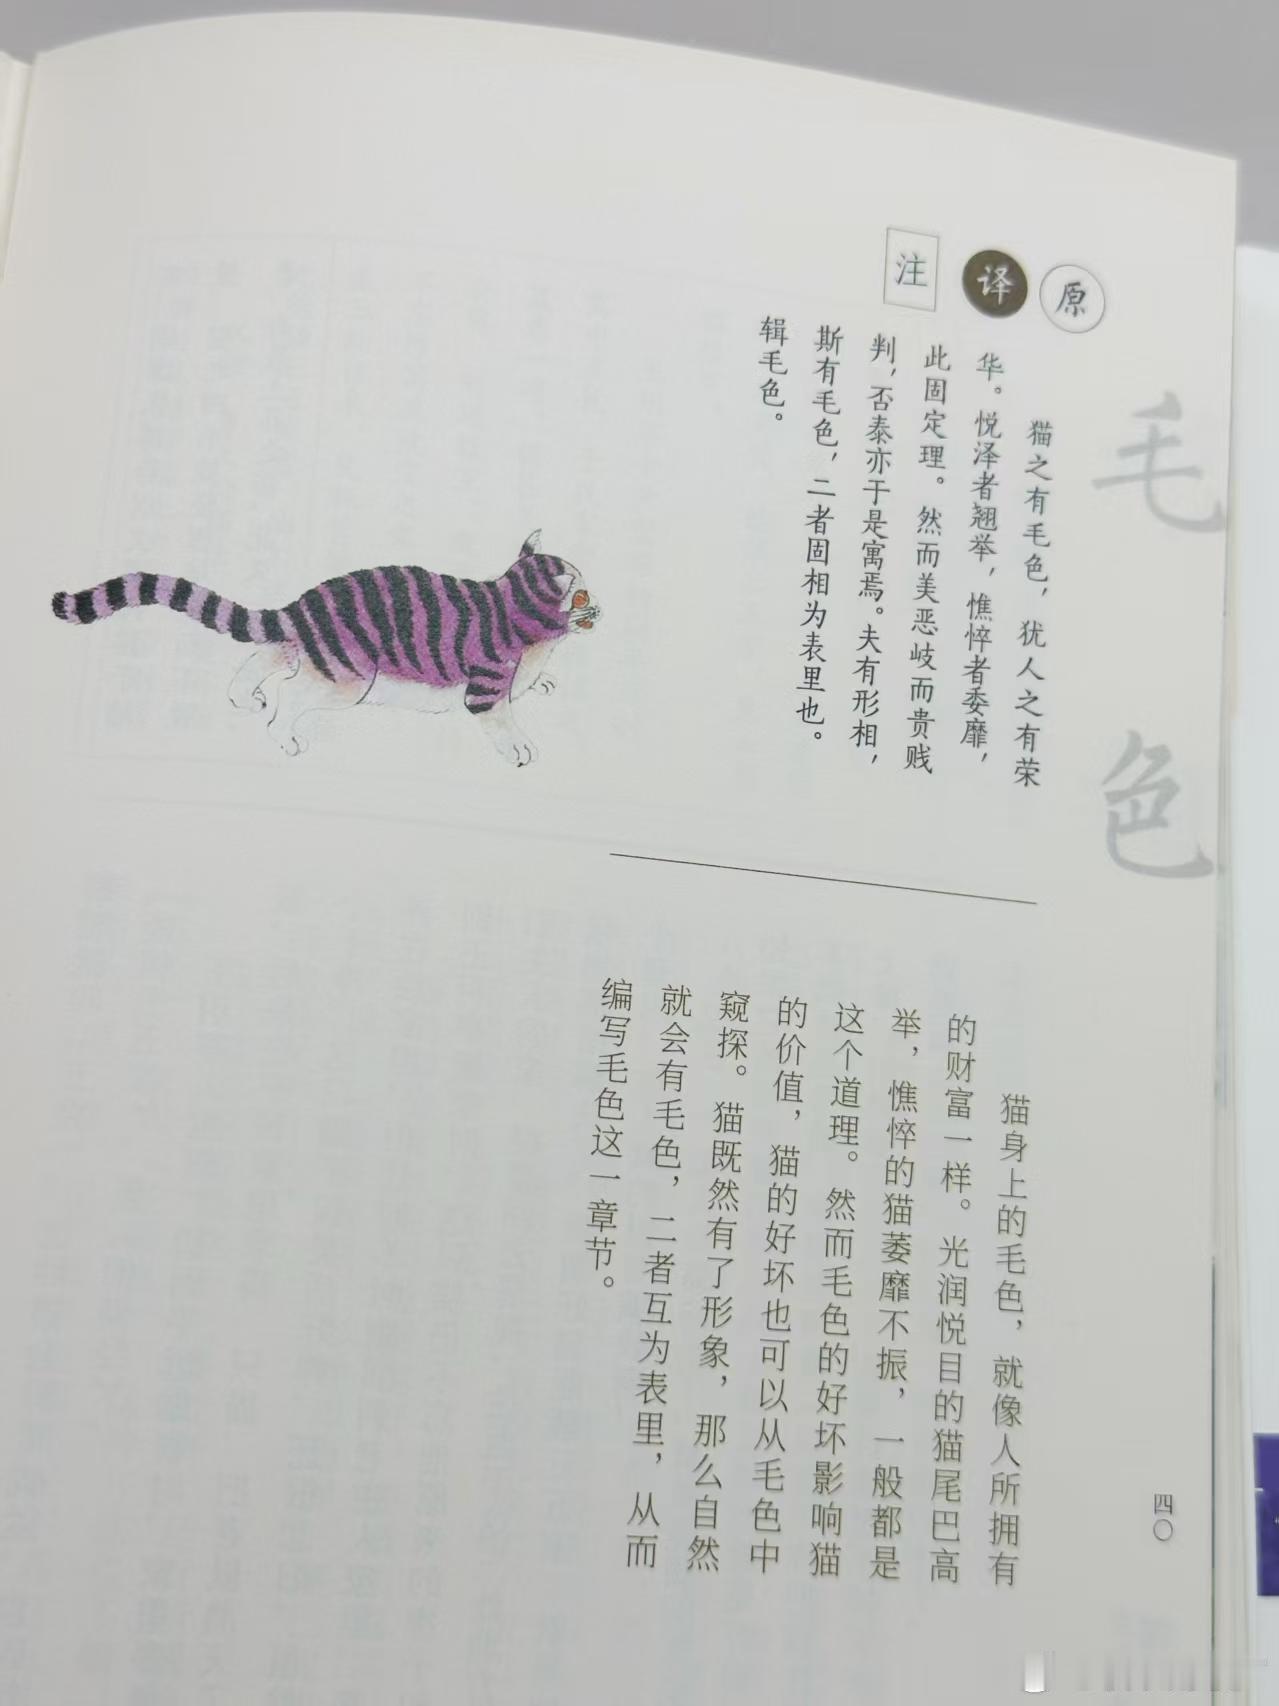 毛色
原
译
注
猫之有毛色，犹人之有荣
华。悦泽者翘举，憔悴者委靡，
此固定理。然而美恶岐而贵贱
判，否泰亦于是寓焉。夫有形相，
斯有毛色，二者固相为表里也。
辑毛色。
猫身上的毛色，就像人所拥有
的财富一样。光润悦目的猫尾巴高
举，憔悴的猫萎靡不振，一般都是
这个道理。然而毛色的好坏影响猫
的价值，猫的好坏也可以从毛色中
窥探。猫既然有了形象，那么自然
就会有毛色，二者互为表里，从而
编写毛色这一章节。
四〇